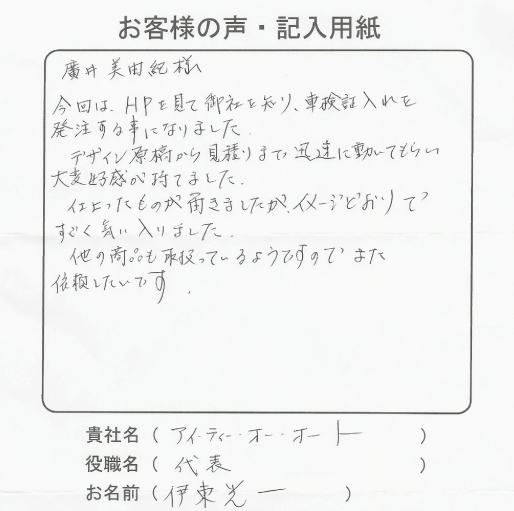 お客様の声・記入用紙
廣井美由紀様
今回は、HPを見て御社を知り、車検証入れを
発注する事になりました.
デザイン原稿から見積りまで迅速に動いてもらい
大変好感が持てました.
仕上ったものが届きましたが、イメージどおりで
すごく気に入りました.
他の商品も取扱っているようですのでまた
依頼したいです.
貴社名(アイ・ティー・オー・オート)
役職名(代表)
お名前(伊東光一)